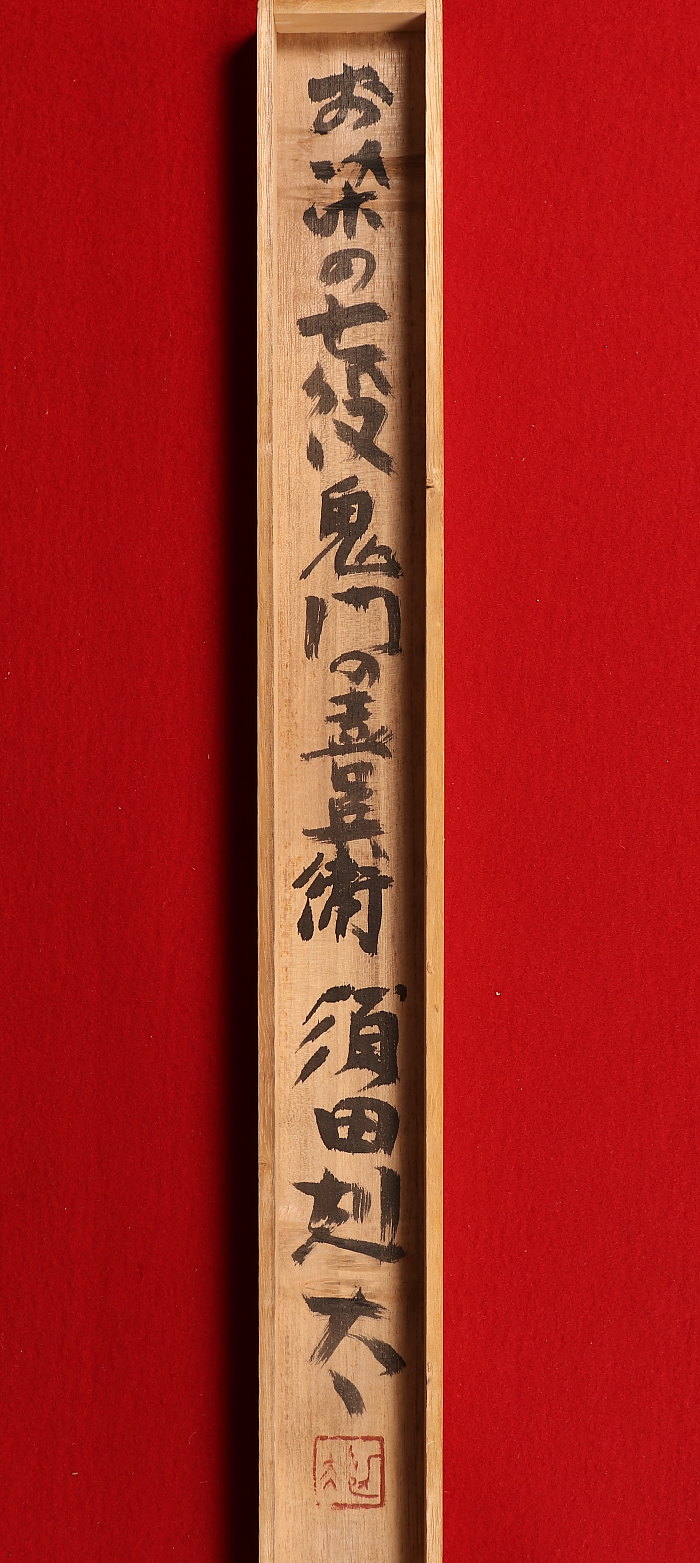 お染の七役鬼門の喜兵衛 須田剋太